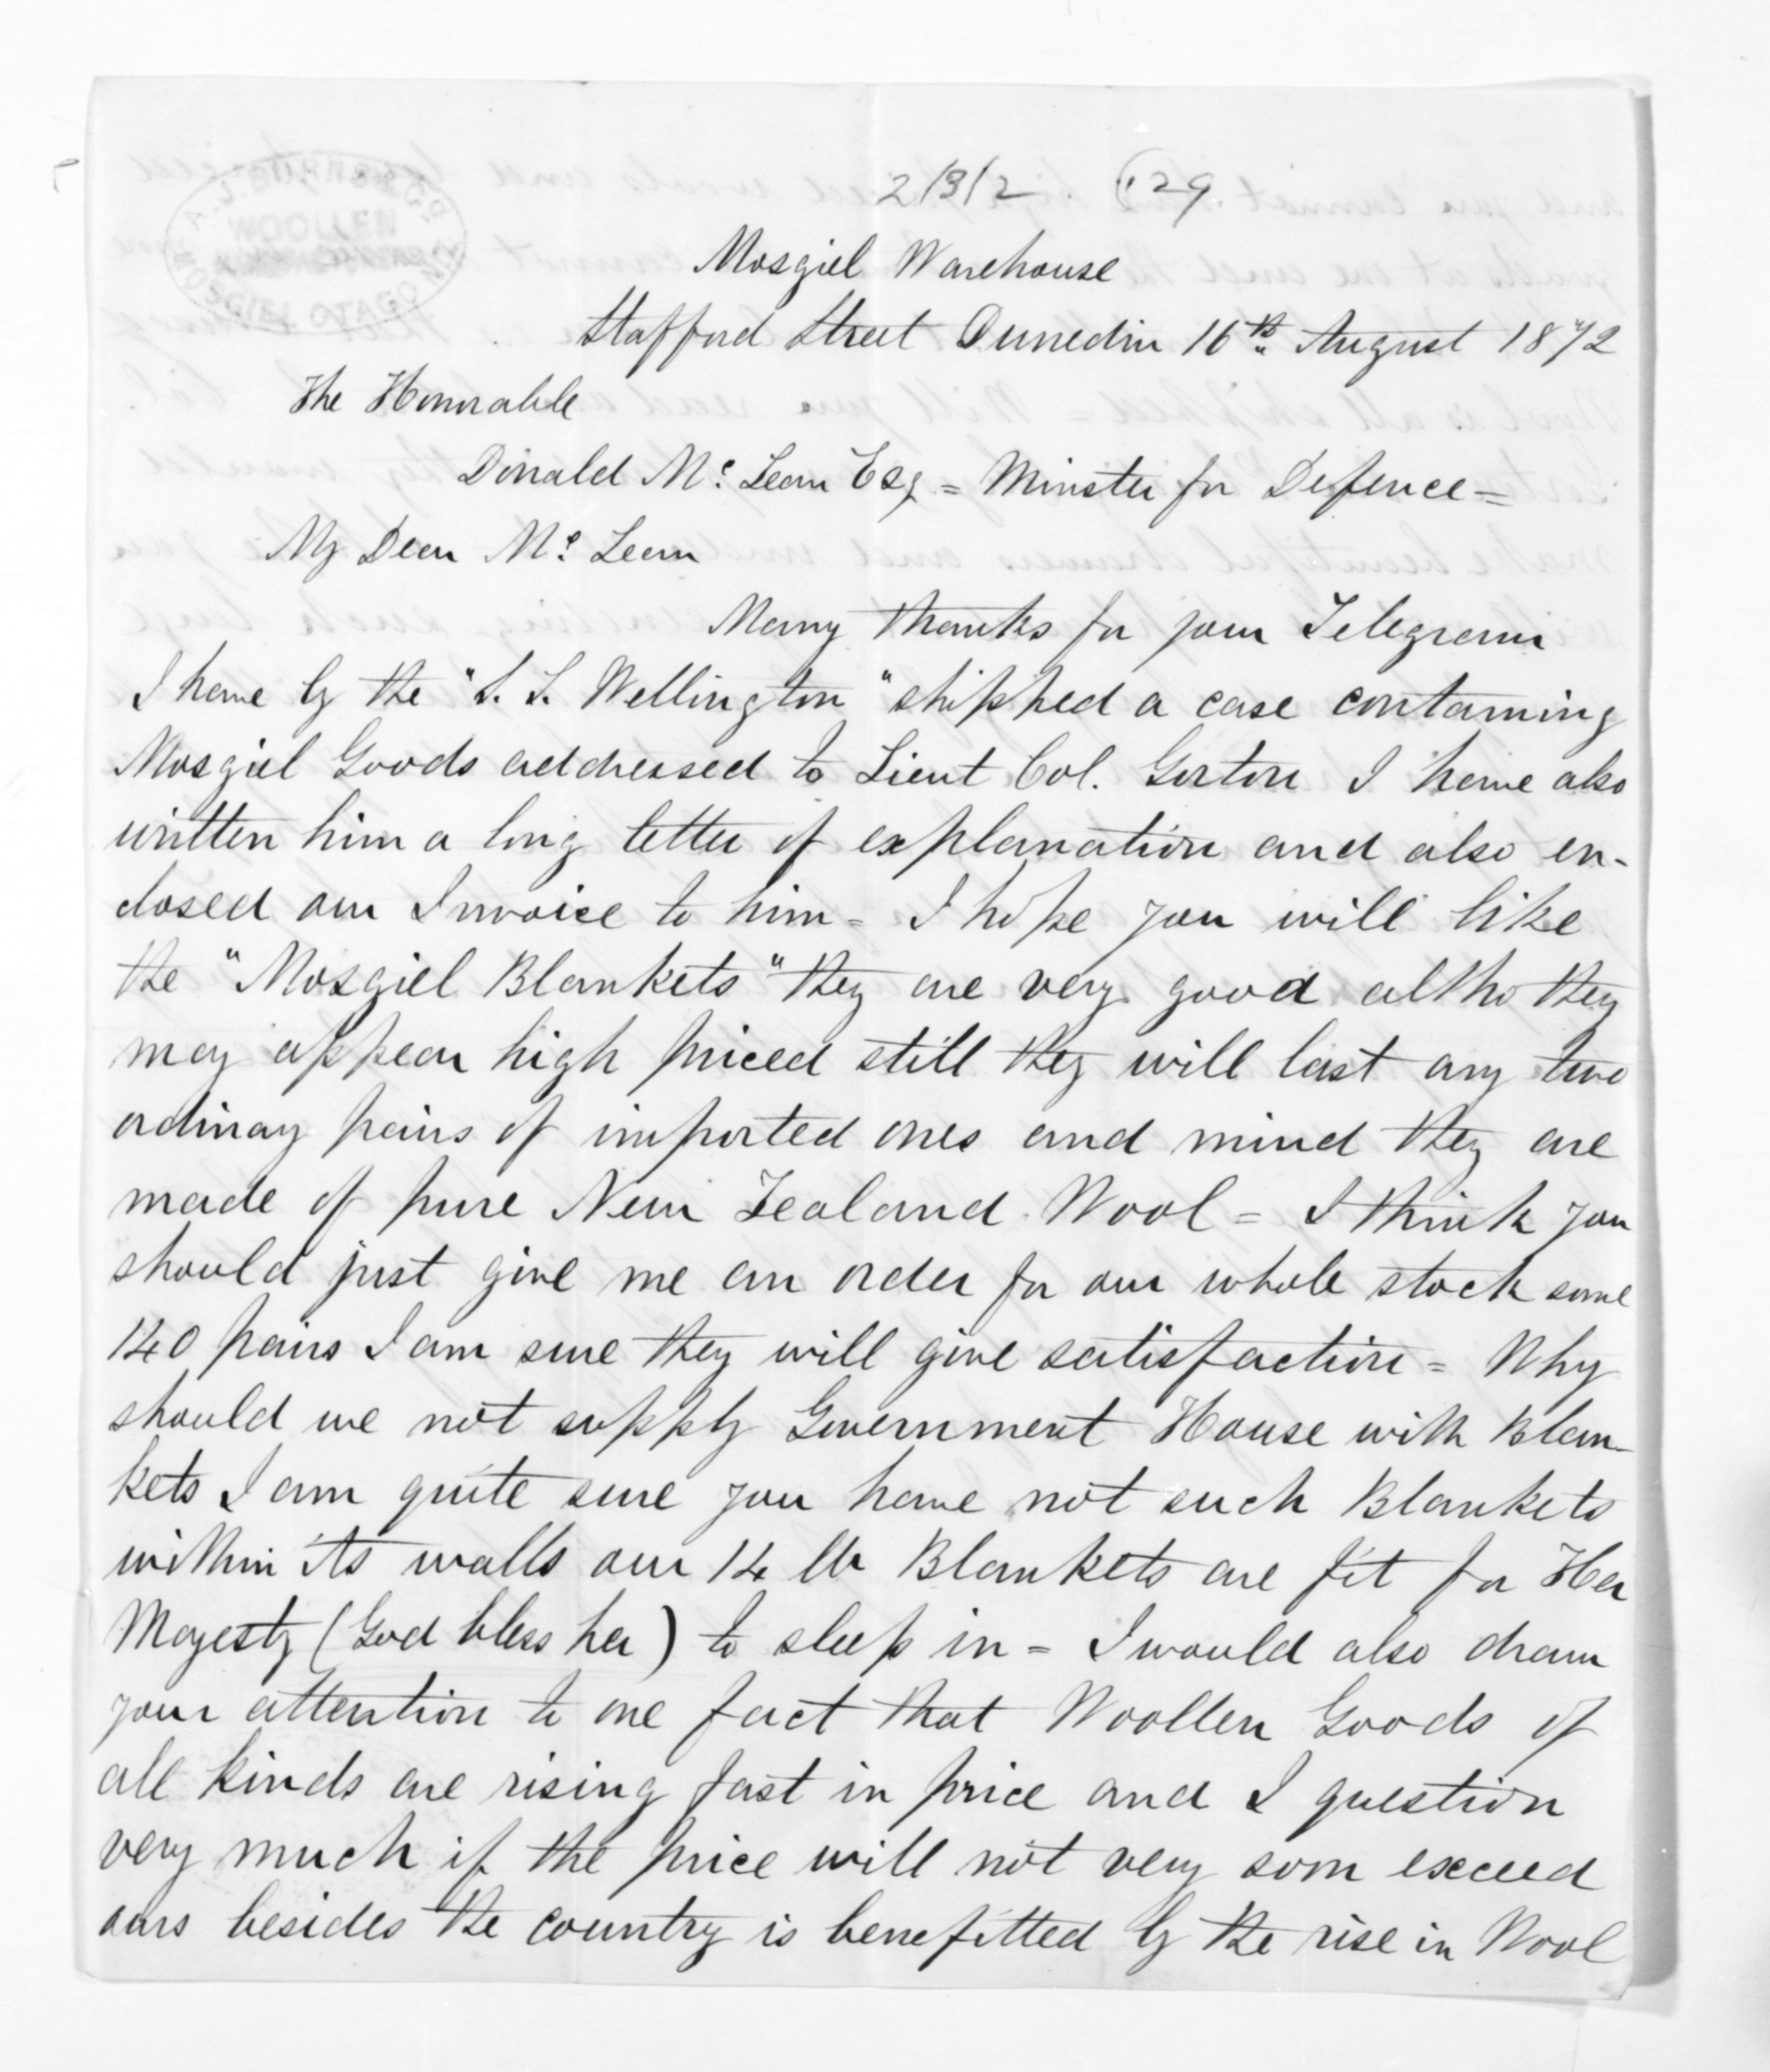 2/3/2. (129.
WOOLLEN
MOSGIEL OTAGO
Mosgiel Warehouse
Stafford Street Dunedin 16th August 1872
The Honorable
Donald Mc Lean Esq = Minister for Defence =
My Dear Mc Lean
Many thanks for your Telegram
I have by the "S. S. Wellington" shipped a case containing
Mosgiel Goods addressed to Lieut Col. Gorton I have also
written him a long letter of explanation and also en-
closed our Invoice to him = I hope you will like
the "Mosgiel Blankets" they are very good altho they
may appear high priced still they will last any two
ordinary pairs of imported ones and mind they are
made of pure New Zealand Wool = I think you
should just give me an order for our whole stock some
140 pairs I am sure they will give satisfaction = Why
should we not supply Government House with Blan-
kets I am quite sure you have not such Blankets
within its walls our 14 lb Blankets are fit for Her
Majesty (God bless her) to sleep in = I would also draw
your attention to one fact that Woollen Goods of
all kinds are rising fast in price and I question
very much if the price will not very soon exceed
ours besides the country is benefitted by the rise in Wool